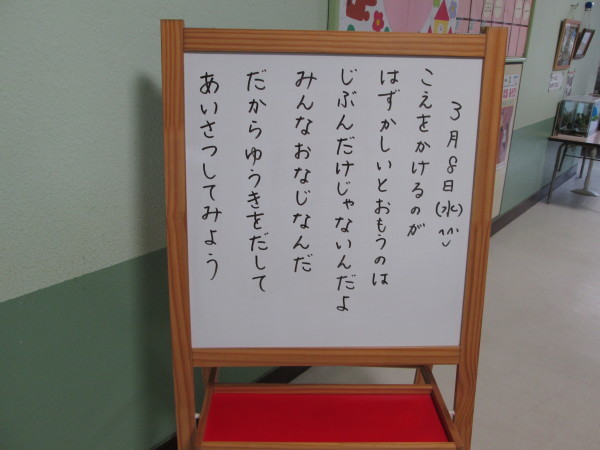 3月8日(水)^^
こえをかけるのが
はずかしいとおもうのは
じぶんだけじゃないんだよ
みんなおなじなんだ
だからゆうきをだして
あいさつしてみよう